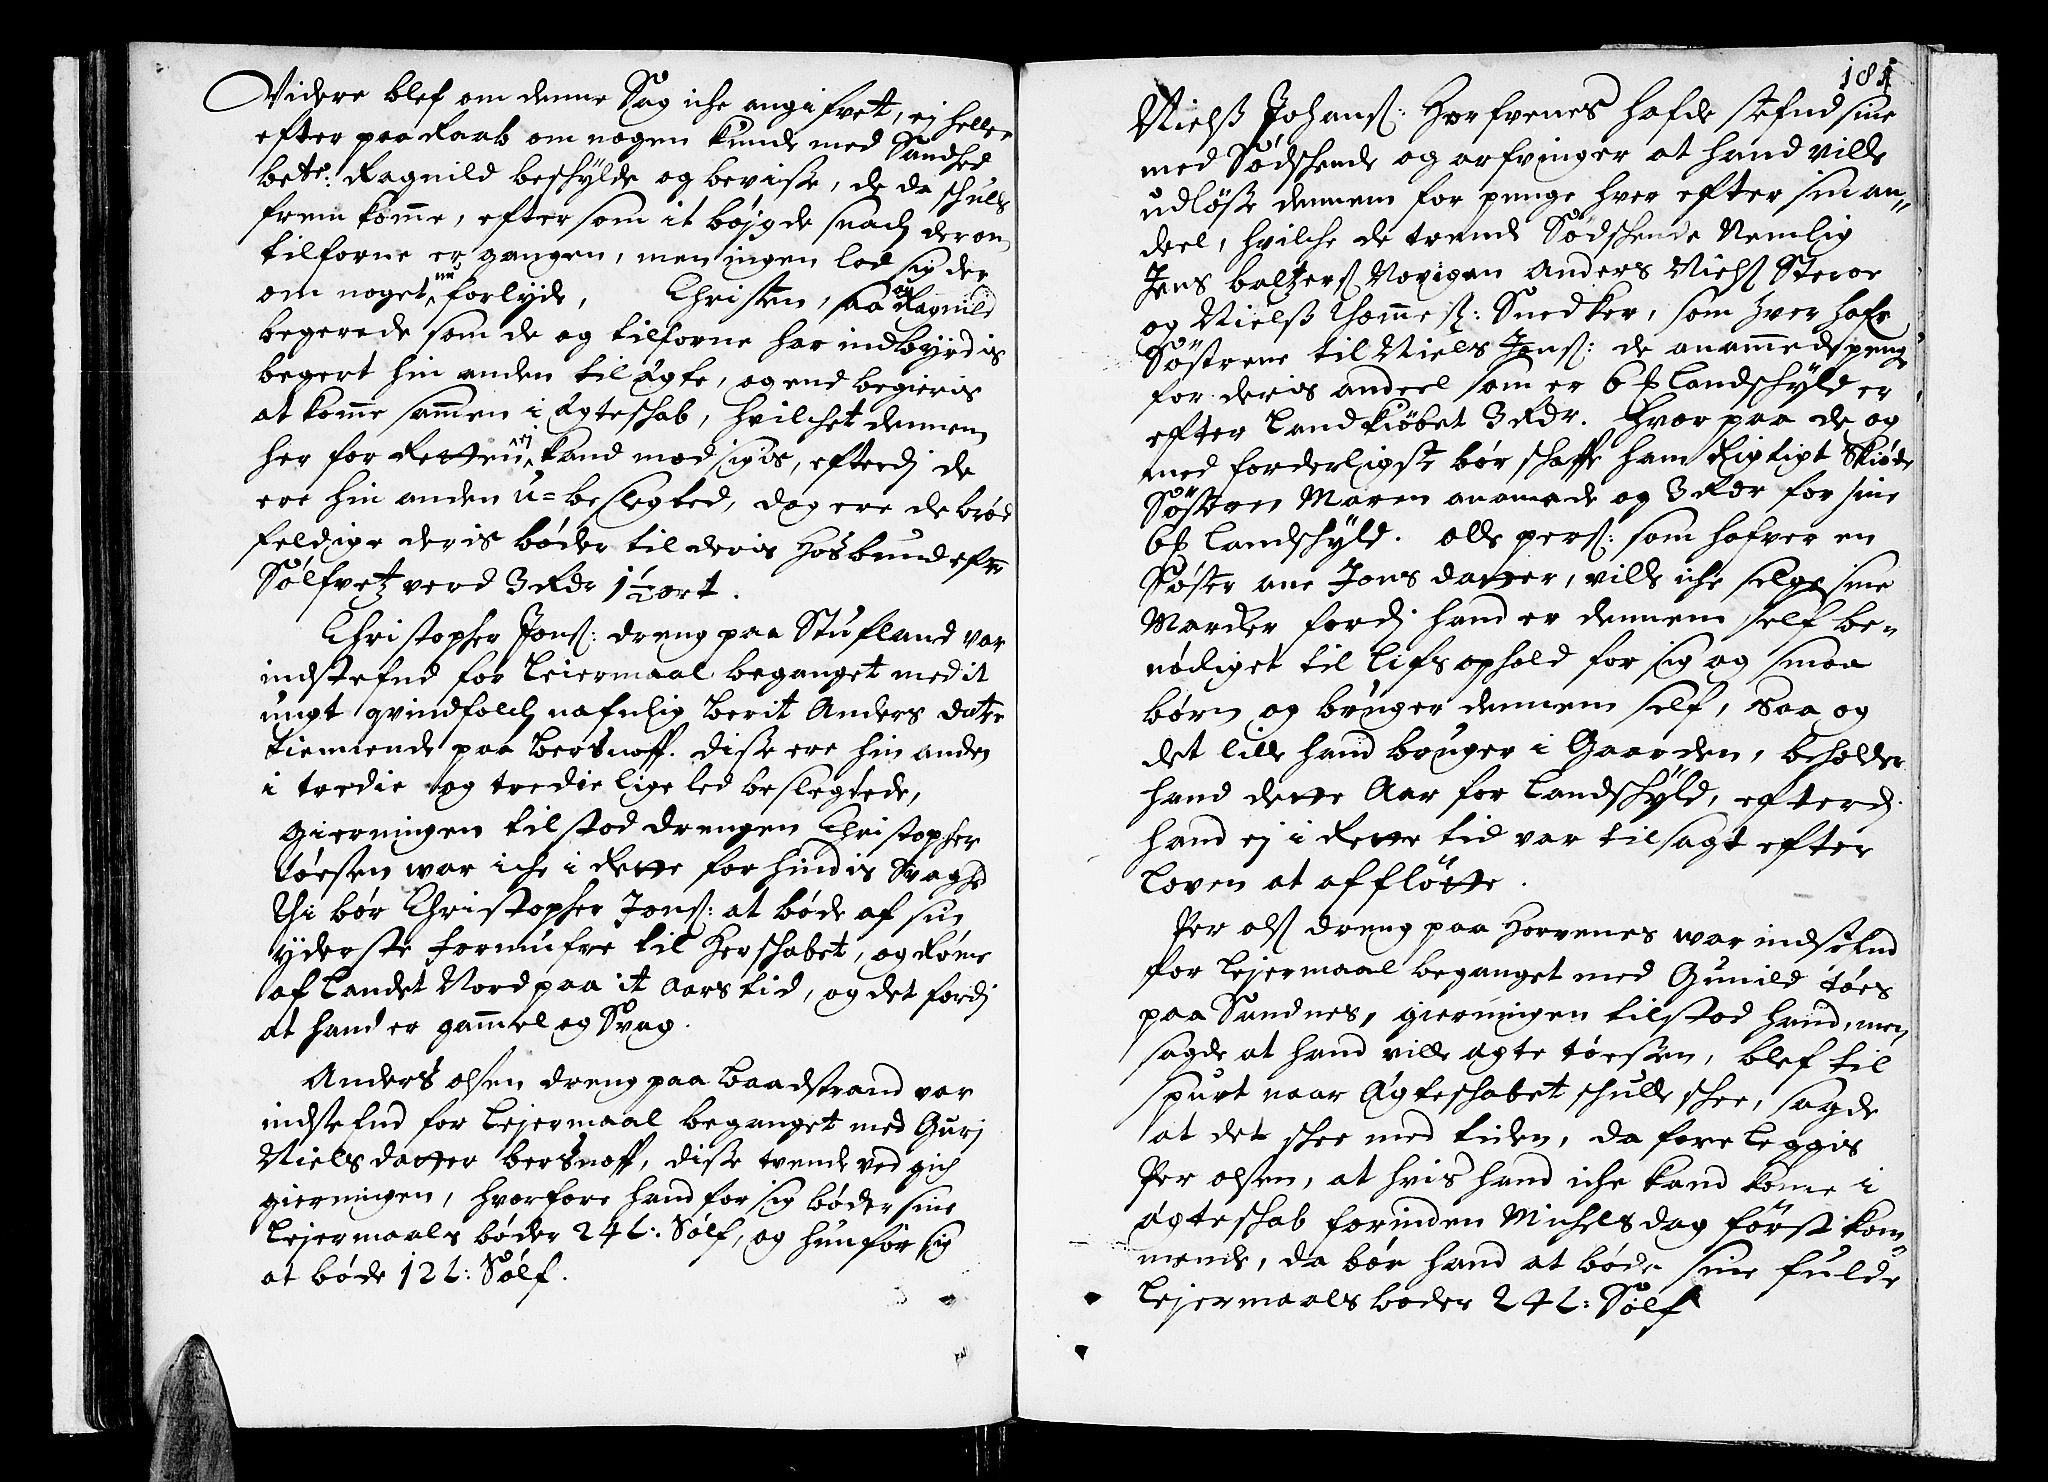 Videre blef om denne Sag iche angifvet, ej heller
efter paaraab om nogen kunde med Sandhed
bete: Ragnild beschylde og bevisse, de da schulle
frem komme, eftersom it böjgde snach derom
tilforne er gangen, men ingen lod sig der
om noget nu forlyde, Christen, saa og Ragnild
begerede som de og tilforne har indbyrdis
begert hin anden til ægte, og end begieris
at komme sammen i Ægteschab, hvilchet dennem
her for Retten ej kand modsigis, efterdj de
ere hin anden u=beslegted, dog ere de bröd
feldige deris böder til deris Hosbund efter
Sölfvetz verd 3 Rdr 1½ ort.
Christopher Jonß: dreng paa Stufland var
indstefnd for Leiermaal beganget med it
ungt qvindfolch nafnlig Berit Anders datter
tiennende paa Bersnoff. disse ere hin anden
i tredie og tredie lige led beslegtede,
gierningen tilstod drengen Christopher
tösen war iche i Rette for hindis Svaghd
Thi bör Christopher Jonß: at böde af sin
yderste formufve til Herschabet, og Röme
af Landet Nordpaa it Aars tid, og det fordj
at hand er gammel og Svag.
Anders olsen dreng paa Baadstrand var
indstefnd for Lejermaal beganget med Gurj
Niels datter Bersnoff, disse tvende ved gich
gierningen, hvorfore hand for sig böder sine
Lejermaals böder 24 L: Sölf, og hun for sig
at böde 12 L: Sölf.
181
Nielß Johanß: Horfvenes hafde stefnd sine
med Södschende og arfvinger at hand ville
udlösse dennem for penge hver efter sin an„
deel, hvilche de trende Södschende Nemlig
Jens baltzerß Novigen Anders Nielß Steroe
og Nielß Thommeß: Snedker, som hver hafr
Söstrene til Niels Jonß: de anammede penge
for deris andeel som er 6 ß Landschyld er
efter Landkiöbet 3 Rdr. Hvor paa de og
med forderligste bör schaffe ham Rigtigt Skiöde
Söstren Maren anamade og 3 Rdr for sine
6 ß Landschyld. Olle perß: som hafver en
Söster ane Jons datter, ville iche selge sine
Marcker fordj hand er dennem self be„
nödiget til lifs ophold for sig og smaa
börn og bruger dennem self, saa og
det lille hand bruger i Gaarden, beholder
hand dette Aar for Landschyld, efterdj
hand ej i Rette tid var tilsagt efter
Loven at afflötte.
Per olß dreng paa Horvenes war indstefnd
for Lejermaal beganget med Gunild töes
paa Sandnes, gierningen tilstod hand, men
sagde at hand ville ægte töessen, blef til
spurt naar Ægteschabet schulle schee, sagde
at det schee med tiden, da fore leggis
Per olsen, at hvis hand iche kand kome i
ægteschab forinden Michels dag först kom„
mende, da bör hand at böde sine fulde
Lejermaals böder 24 L: Sölf